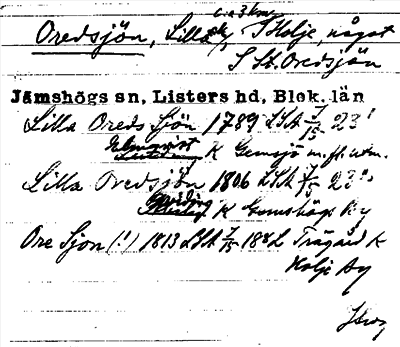 c:a 3 km
Oredsjön, Lilla, S Holje, något
S St. Oredsjön
Jämshögs sn, Listers hd, Blek. län
Lilla Oreds Sjön 1789 LSA 7/15 23'
K Gemsjö m. fl. utm.
Lilla Oredsjön 1806 LSA 7/15 23
K Gemshögs By
Ore Sjon (!) 1813 LSA 7/15 1842 Trägård K
Holje Ay